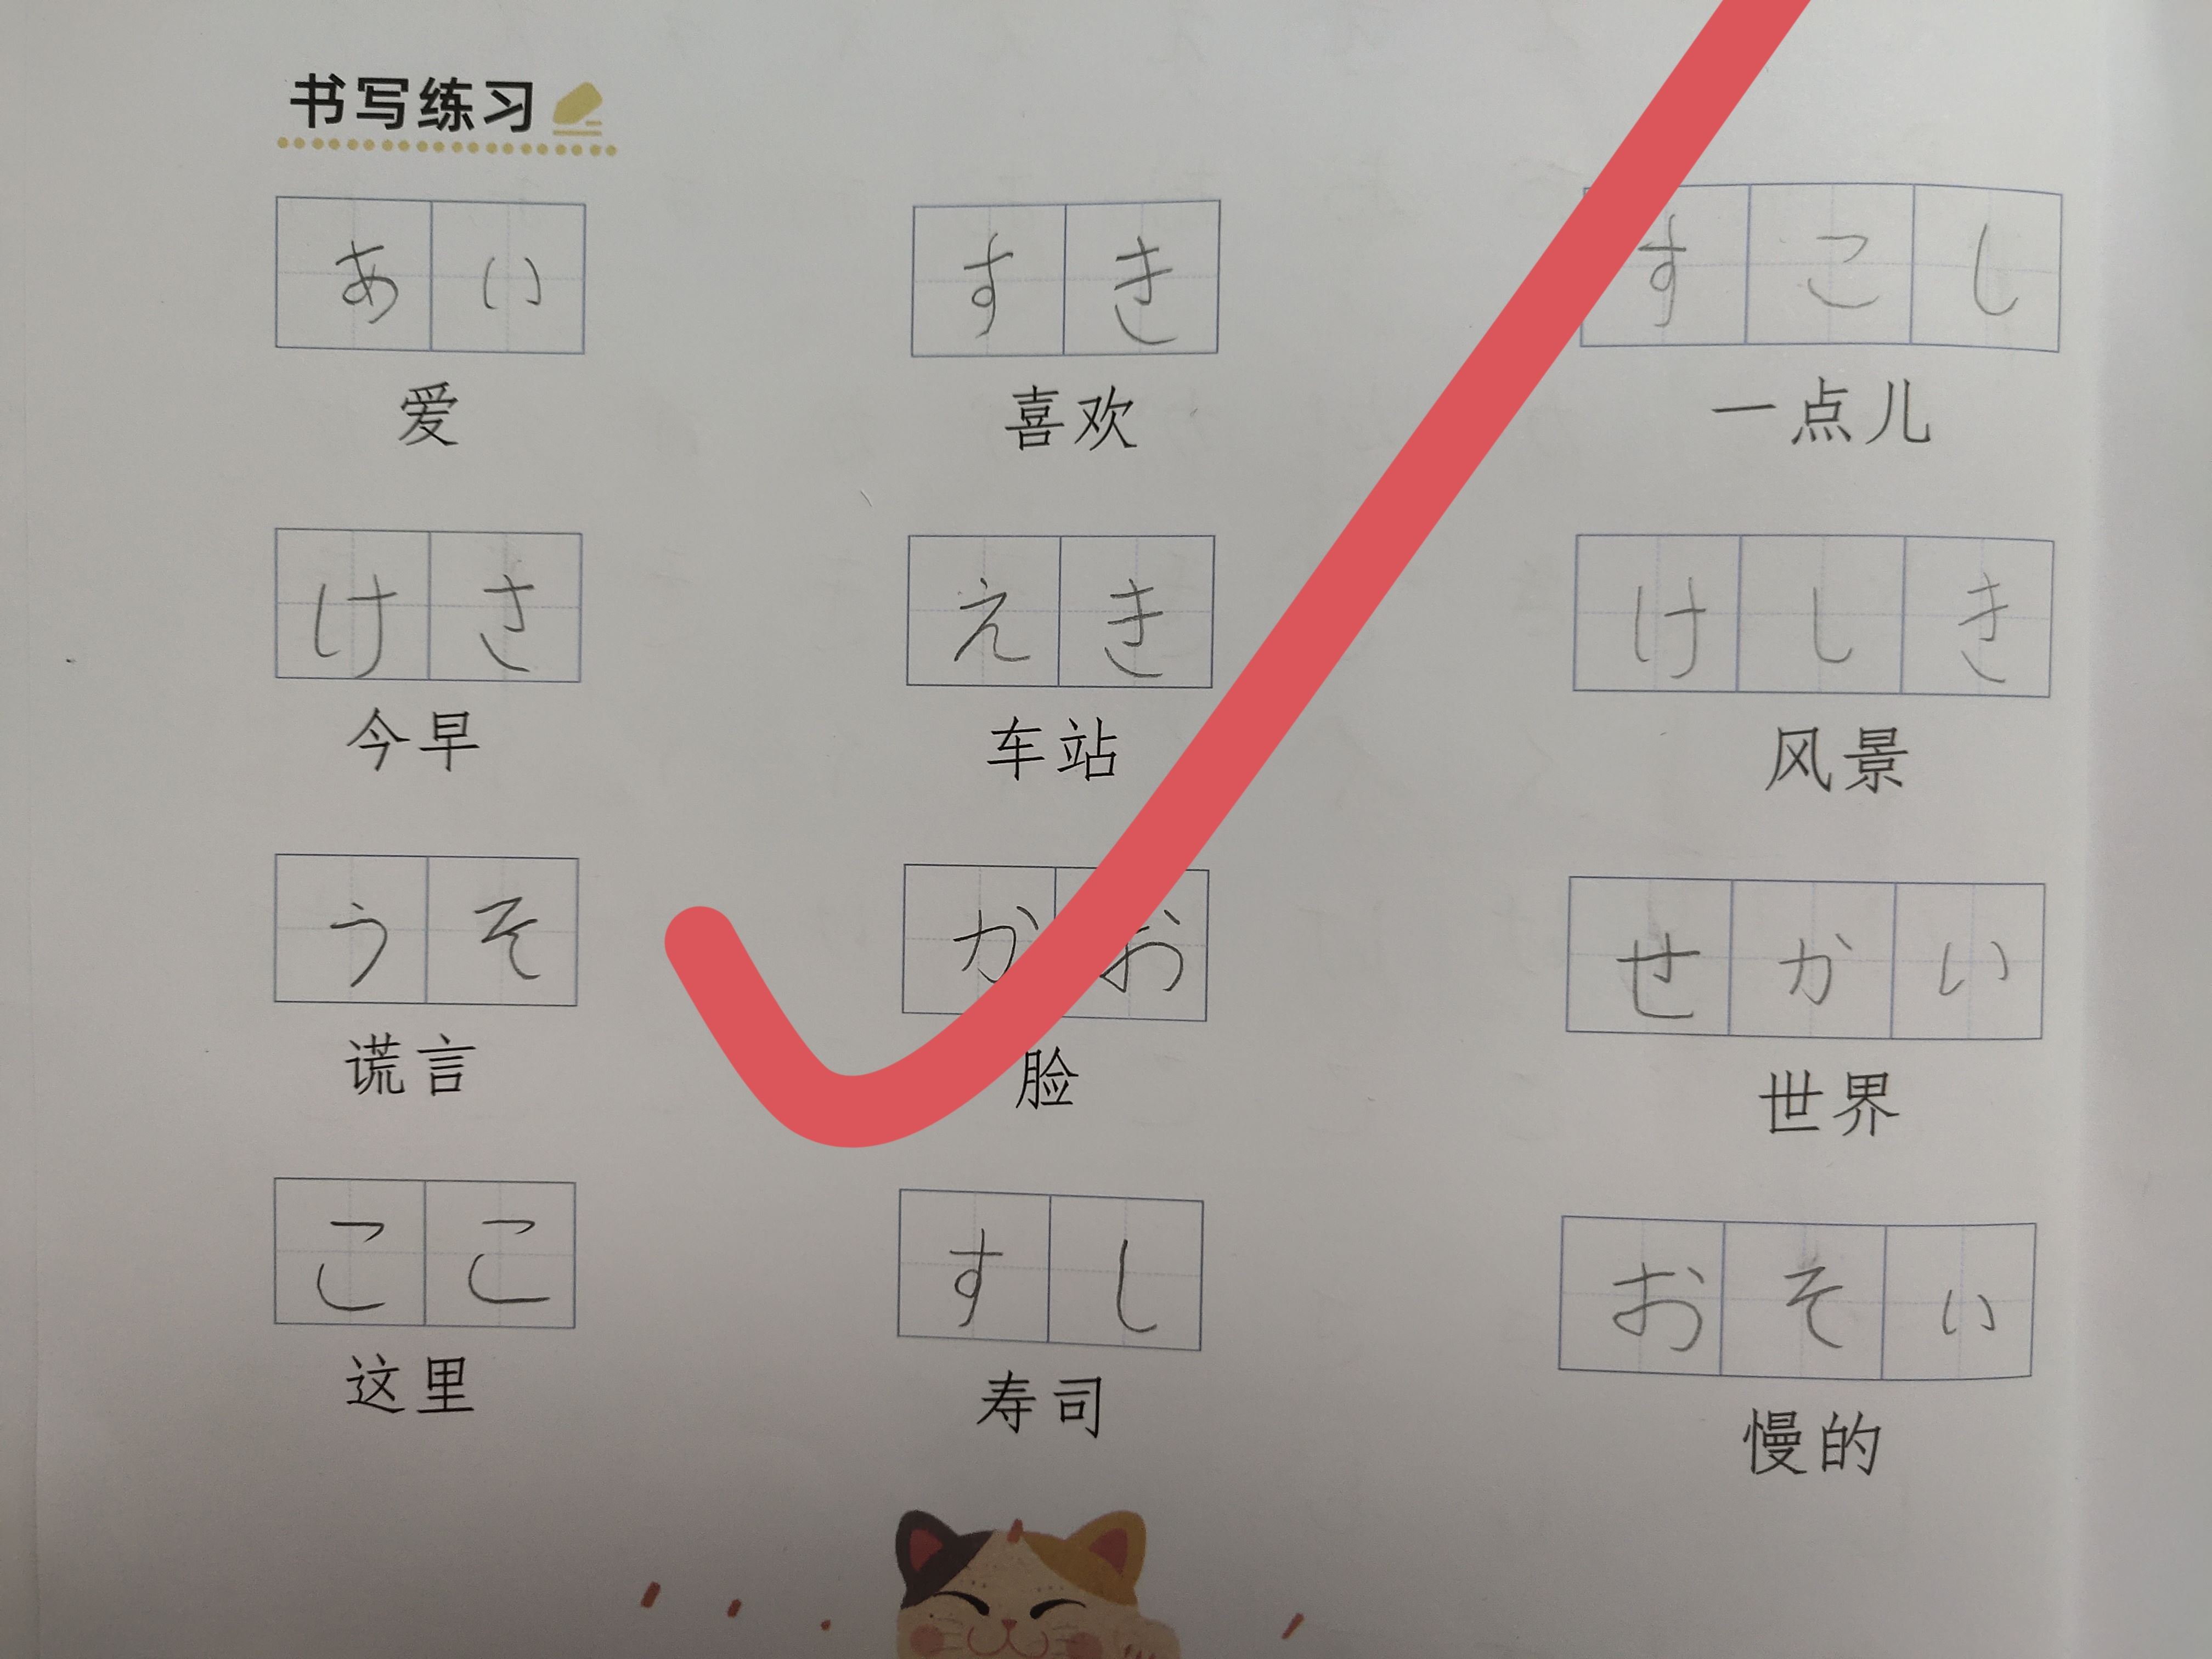 书写练习
あい すき すこし
爱 喜欢 一点儿
けさ えき けしき
今早 车站 风景
うそ かお せかい
谎言 脸 世界
ここ すし おそい
这里 寿司 慢的